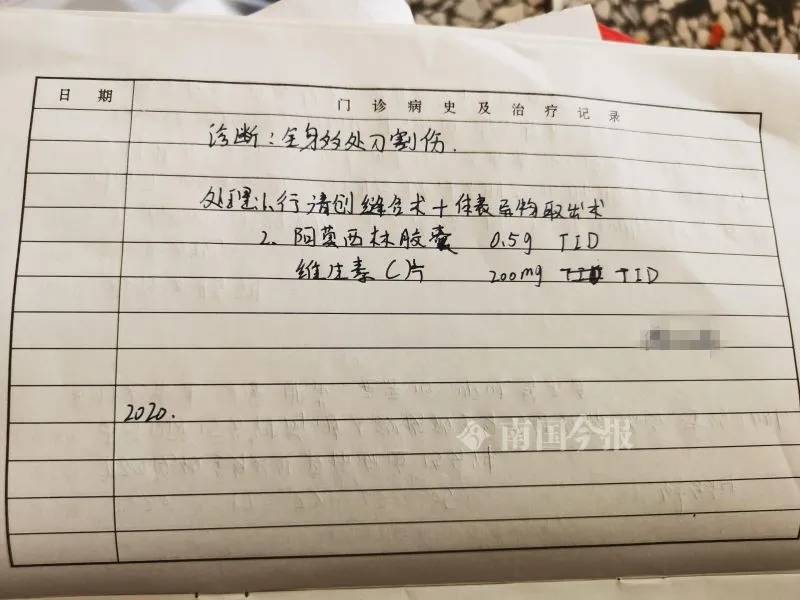 日 期 门 诊 病 史 及 治 疗 记 录
诊断:全身多处刀割伤.
处理:1.行清创缝合术+体表异物取出术
2. 阿莫西林胶囊 0.5g TID
维生素C片 200mg TID TID
2020.
南国今报